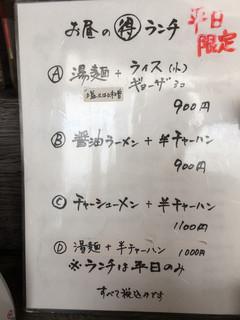 お昼の得ランチ
平日
限定
Ⓐ 湯麺 + ライス(小)
ギョーザ3コ
塩又は味噌
900円
Ⓑ 醤油ラーメン + 半チャーハン
900円
Ⓒ チャーシューメン + 半チャーハン
1100円
Ⓓ 湯麺 + 半チャーハン 1000円
※ランチは平日のみ
すべて税込みです